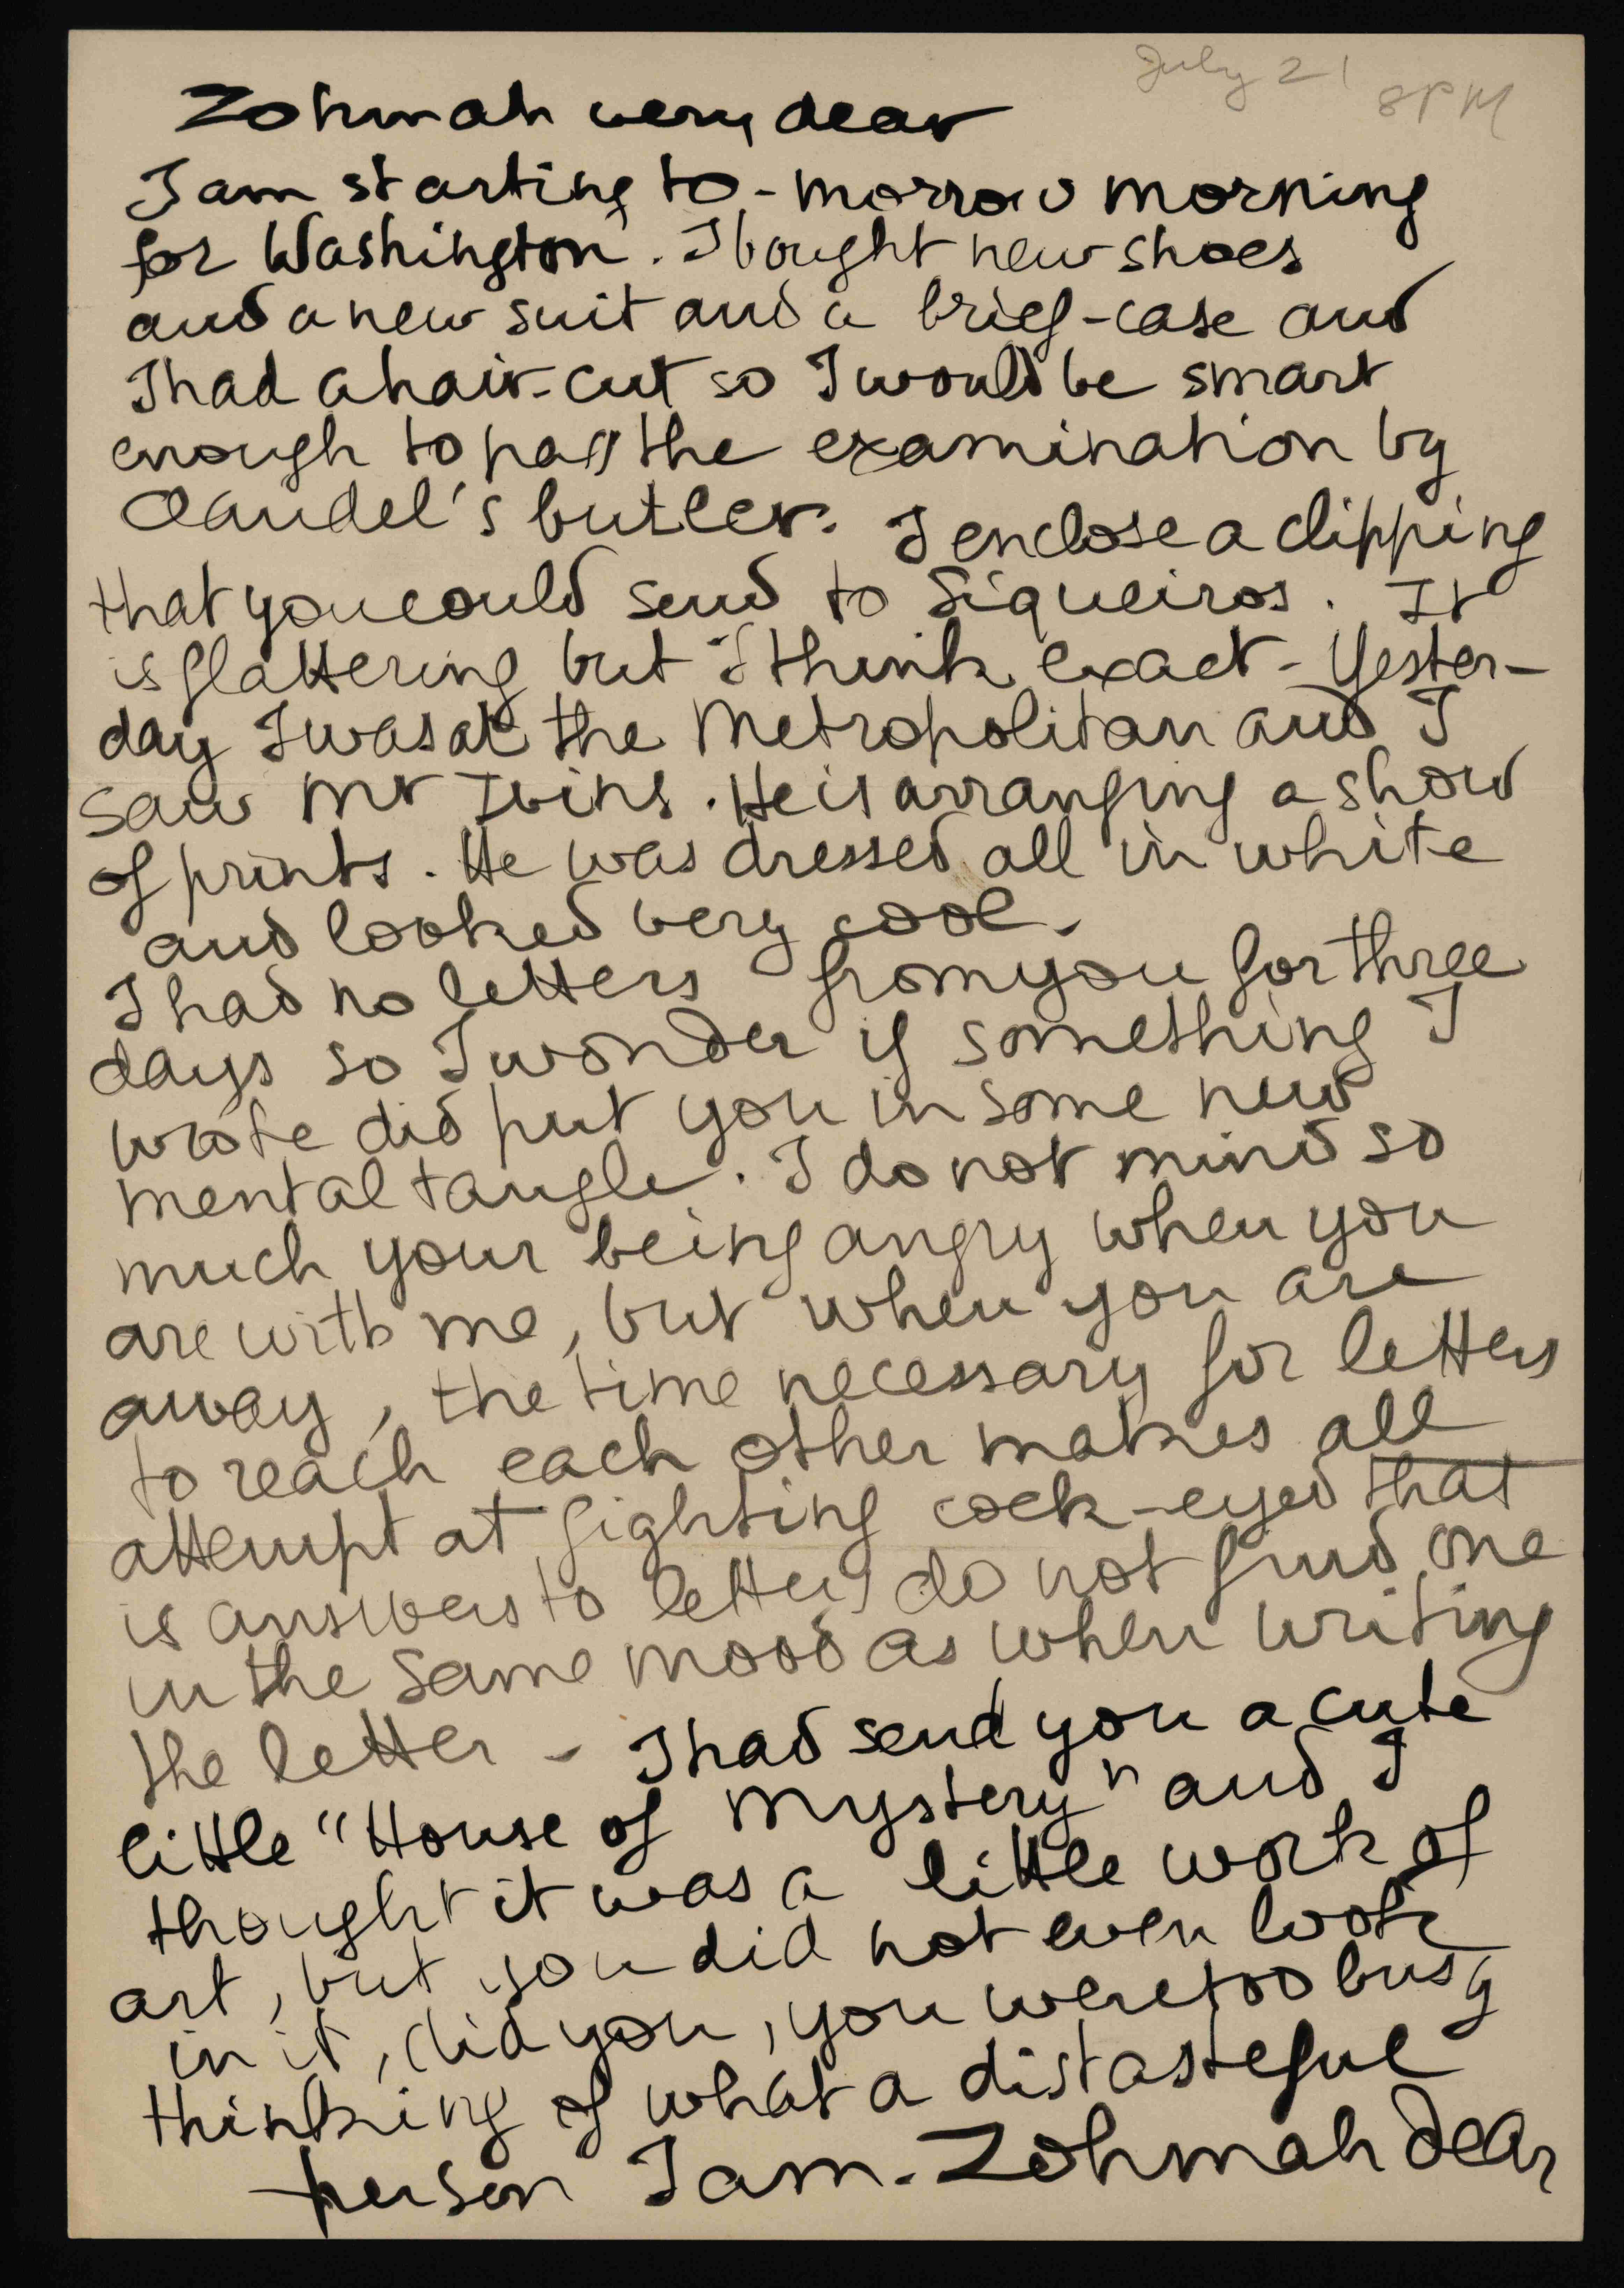 July 21 8 PM
Zohmah very dear
I am starting to-morrow morning
for Washington. I bought new shoes
and a new suit and a brief-case and
I had a hair-cut so I would be smart
enough to pass the examination by
Claudel's butler. I enclose a clipping
that you could send to Siqueiros. It
is flattering but I think exact - Yester-
day I was at the Metropolitan and I
saw Mr Ivins. He is arranging a show
of prints. He was dressed all in white
and looked very cool.
I had no letters from you for three
days so I wonder if something I
wrote did put you in some new
mental tangle. I do not mind so
much your being angry when you
are with me, but when you are
away, the time necessary for letters
to reach each other makes all
attempt at fighting cock-eyed that
is answers to letters do not find one
in the same mood as when writing
the letter - I had send you a cute
little "House of Mystery" and I
thought it was a little work of
art, but you did not even look
in it, did you, you were too busy
thinking of what a distasteful
person I am. Zohmah dear